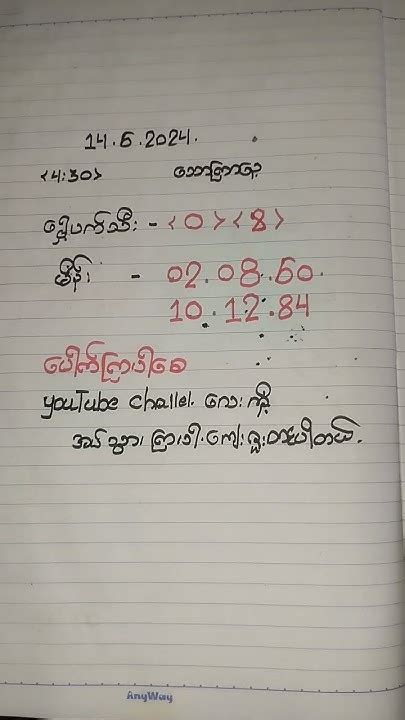 14.6.2024.
<4:30> သောကြာနေ့
ရှေ့ပက်သီး - <0> <8>
မိန်း - 02.08.60.
10.12.84
ပေါက်ကြပါစေ
youTube challel. လေး ကို
အပ် သွား ကြပါ.ကျေးဇူးတင်ပါတယ်.
AnyWay